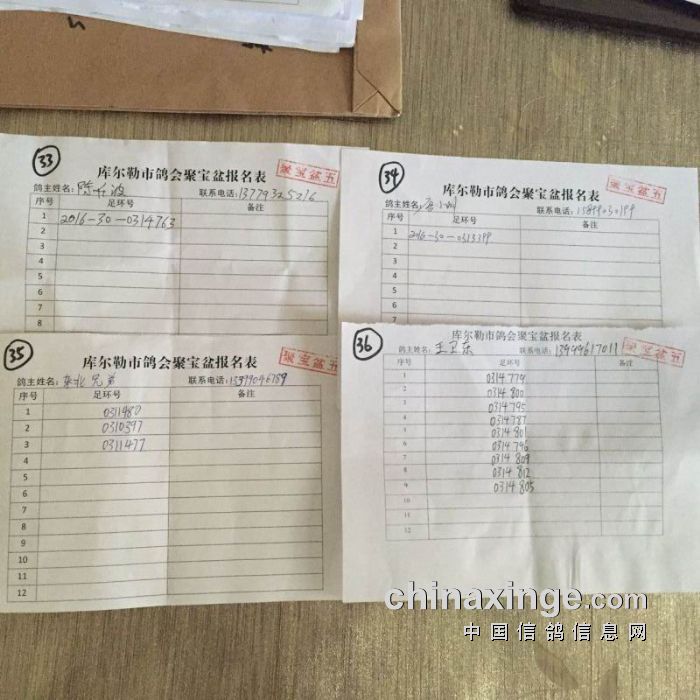 33
库尔勒市鸽会聚宝盆报名表
聚宝盆五
鸽主姓名： 联系电话：13779325216
序号 足环号 备注
1 2016-30-0314763
2
3
4
5
6
7
8
34
库尔勒市鸽会聚宝盆报名表
聚宝盆五
鸽主姓名： 联系电话：
序号 足环号 备注
1 2016-30-0313399
2
3
4
5
6
7
35
库尔勒市鸽会聚宝盆报名表
聚宝盆五
鸽主姓名：东北兄弟 联系电话：
序号 足环号 备注
1 0311480
2 0310397
3 0311477
4
5
6
7
8
9
10
11
12
36
库尔勒市鸽会聚宝盆报名表
聚宝盆五
鸽主姓名：王卫东 联系电话：13999617011
序号 足环号 备注
1 0314774
2 0314800
3 0314795
4 0314787
5 0314801
6 0314796
7 0314809
8 0314812
9 0314805
10
11
12
chinaxinge.com
中国信鸽信息网